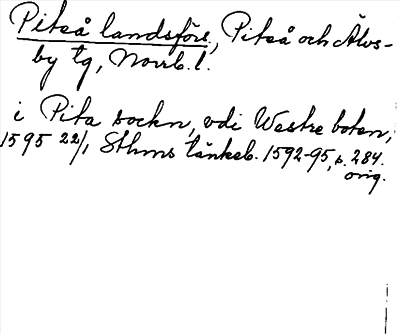 Piteå landsförs., Piteå och Älvs-
by tg, Norrb. l.
i Pita sockn, vdi Westre boten,
1595 22/1, Sthms tänkeb. 1592-95, s. 284.
orig.